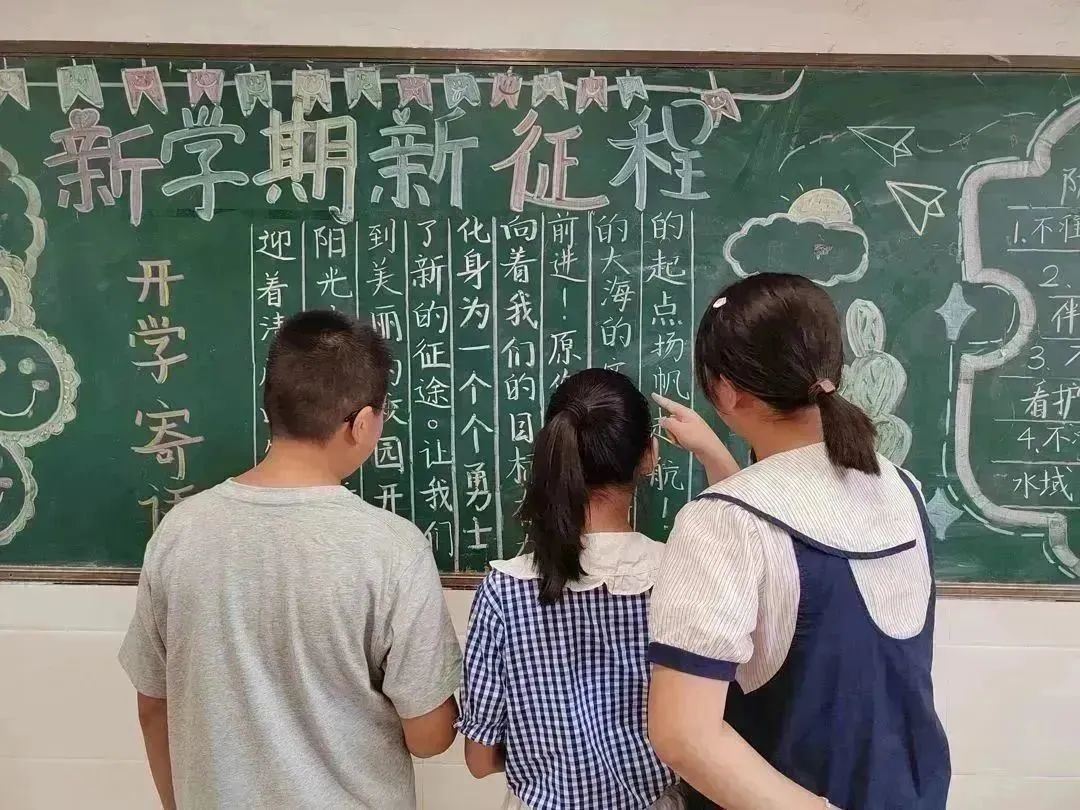 新学期新征程
开学寄语
迎着清
阳光
到美丽的校园开
了新的征途。让我们
化身为一个个勇士
向着我们的目标
前进！愿
的大海的
的起点扬帆起航！
1.不
2.
伴
3.不
看护
4.不
水域